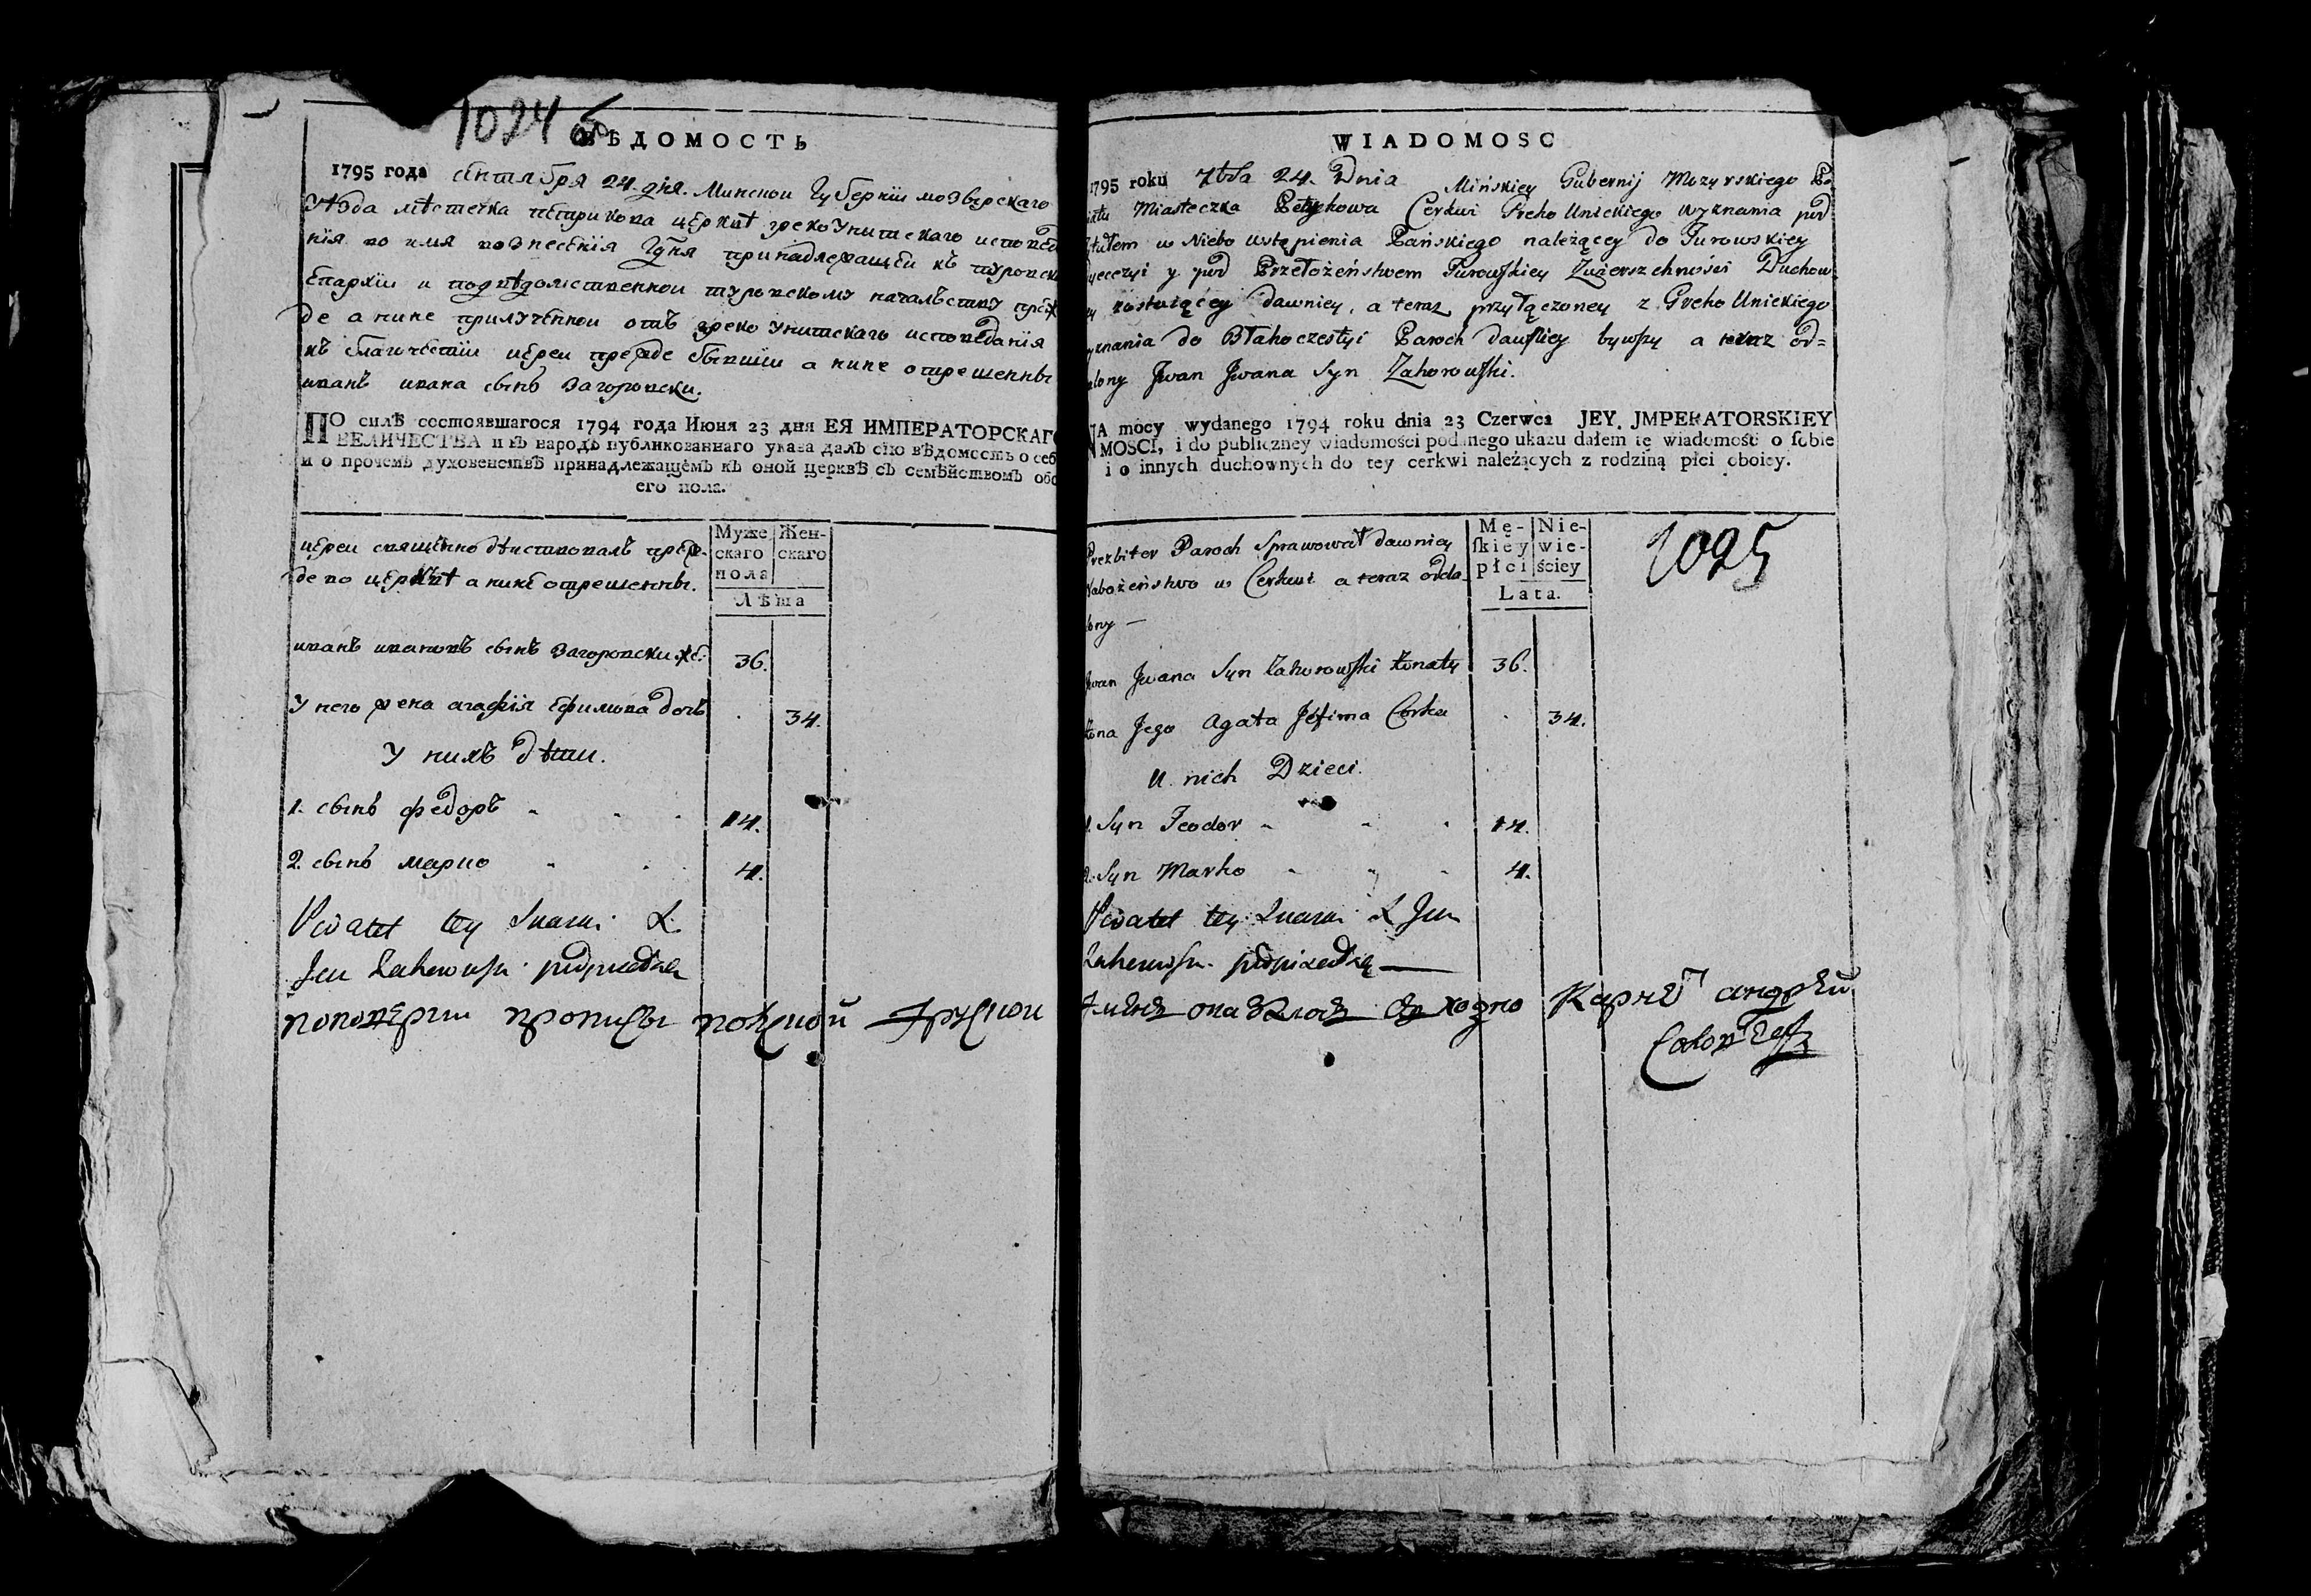 1024
ВѢДОМОСТЬ
1795 года сентября 24. дня. Минской Губернїи мозырскаго
уѣзда мѣстечка петрикова церквѣ греко Унитскаго исповѣд
нія во имя вознесенія Гдня принадлежащей къ туровск
Епархїи и подвѣдомственной туровскому начальству преж
де а нине прилученной отъ греко унитскаго исповѣданія
къ благочестїи иереи прежде бывшїи а нине отрешенны
иванъ ивана сынъ Загоровски.
ПО силѣ состоявшагося 1794 года Июня 23 дня ЕЯ ИМПЕРАТОРСКАГО
ВЕЛИЧЕСТВА и въ народъ публикованнаго указа далъ сію вѣдомость о себ
и о прочемъ духовенствѣ принадлежащемъ къ оной церквѣ съ семѣйствомъ обо
его пола.
Муже
скаго
пола
Жен-
скаго
Лѣта
иереи священнодѣиствовалъ преж-
де во церквѣ а нине отрешенны.
иванъ ивановъ сынъ Загоровски же.
36.
У него жена агафія Ефимова дочь
34.
У нихъ дѣти.
1. сынъ федоръ
14.
2. сынъ марко
4.
tey
X.
WIADOMOSC
1795 roku 7bra 24. Dnia Mińskiey Gubernij Mozyrskiego Po
iatu Miasteczka Petrykowa Cerkwi Greko Unickiego wyznania pod
tytułem w Niebo wstąpienia Pańskiego należącey do Turowskiey
yecezyi y pod Przełożeństwem Turowskiey Zwierzchności Duchow
zostaiącey dawniey, a teraz przyłączoney z Greko Unickiego
yznania do Błahoczestyi Paroch dawniey bywszy a teraz od=
alony Jwan Jwana Syn Zahorowski.
NA mocy wydanego 1794 roku dnia 23 Czerwca JEY JMPERATORSKIEY
MOSCI, i do publiczney wiadomości podanego ukazu dałem tę wiadomość o sobie
i o innych duchownych do tey cerkwi należących z rodziną płci oboiey.
Mę-
skiey
płci
Nie-
wie-
ściey
Lata.
1095
Prezbiter Paroch Sprawował dawniey
Nabożeństwo w Cerkwi a teraz odda
lony —
Jwan Jwana Syn Zahorowski żonaty
36.
żona Jego Agata Jefima Corka
34.
U nich Dzieci.
1. Syn Teodor
14.
2. Syn Marko
4.
tey
X Jan
андрей